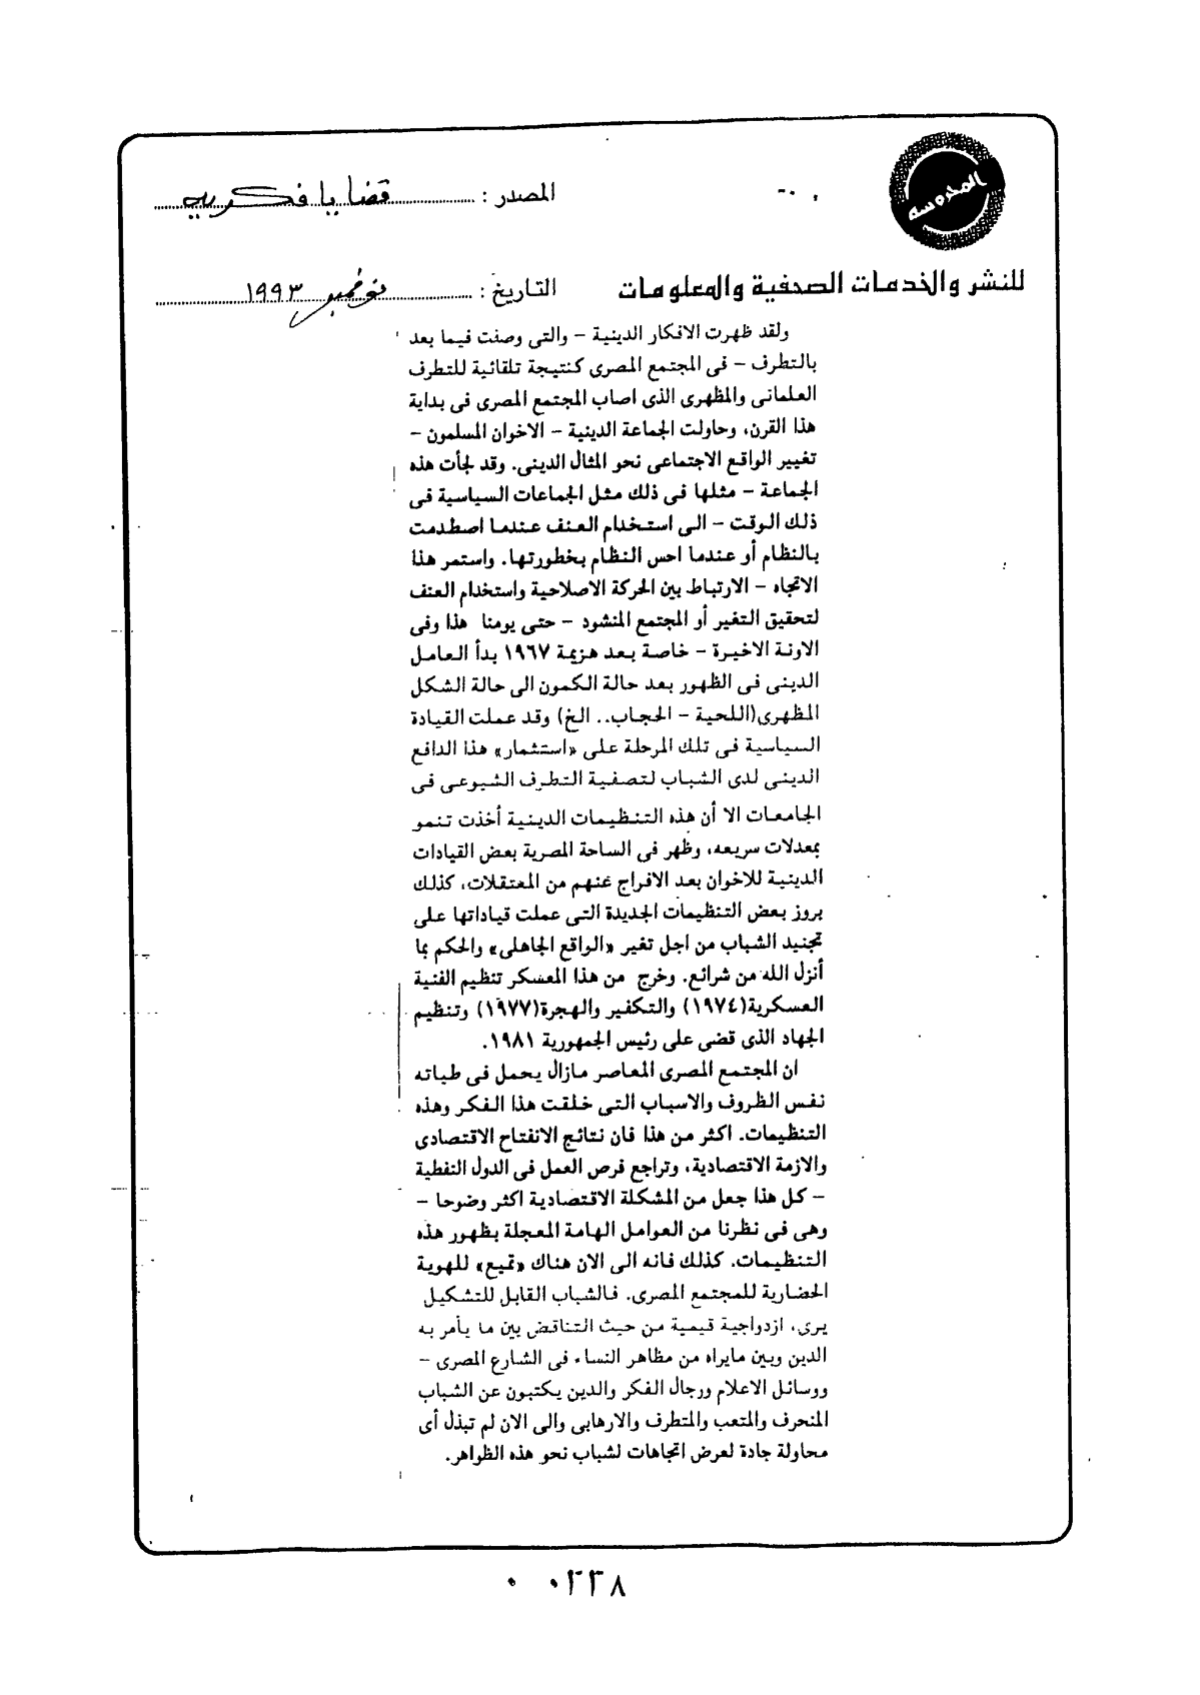 المحروسه
المصدر : قضايا فكريه
للنشر والخدمات الصحفية والمعلومات
التاريخ : نوفمبر ١٩٩٣
ولقد ظهرت الافكار الدينية – والتى وصفت فيما بعد
بالتطرف – فى المجتمع المصرى كنتيجة تلقائية للتطرف
العلمانى والمظهرى الذى اصاب المجتمع المصرى فى بداية
هذا القرن، وحاولت الجماعة الدينية – الاخوان المسلمون –
تغيير الواقع الاجتماعى نحو المثال الدينى. وقد لجأت هذه
الجماعة – مثلها فى ذلك مثل الجماعات السياسية فى
ذلك الوقت – الى استخدام العنف عندما اصطدمت
بالنظام أو عندما احس النظام بخطورتها. واستمر هذا
الاتجاه – الارتباط بين الحركة الاصلاحية واستخدام العنف
لتحقيق التغير أو المجتمع المنشود – حتى يومنا هذا وفى
الاونة الاخيرة – خاصة بعد هزيمة ١٩٦٧ بدأ العامل
الدينى فى الظهور بعد حالة الكمون الى حالة الشكل
المظهرى(اللحية – الحجاب.. الخ) وقد عملت القيادة
السياسية فى تلك المرحلة على «استثمار» هذا الدافع
الدينى لدى الشباب لتصفية التطرف الشيوعى فى
الجامعات الا أن هذه التنظيمات الدينية أخذت تنمو
بمعدلات سريعه، وظهر فى الساحة المصرية بعض القيادات
الدينية للاخوان بعد الافراج عنهم من المعتقلات، كذلك
بروز بعض التنظيمات الجديدة التى عملت قياداتها على
تجنيد الشباب من اجل تغير «الواقع الجاهلى» والحكم بما
أنزل الله من شرائع. وخرج من هذا المعسكر تنظيم الفنية
العسكرية(١٩٧٤) والتكفير والهجرة(١٩٧٧) وتنظيم
الجهاد الذى قضى على رئيس الجمهورية ١٩٨١.
ان المجتمع المصرى المعاصر مازال يحمل فى طياته
نفس الظروف والاسباب التى خلقت هذا الفكر وهذه
التنظيمات. اكثر من هذا فان نتائج الانفتاح الاقتصادى
والازمة الاقتصادية، وتراجع فرص العمل فى الدول النفطية
– كل هذا جعل من المشكلة الاقتصادية اكثر وضوحا –
وهى فى نظرنا من العوامل الهامة المعجلة بظهور هذه
التنظيمات. كذلك فانه الى الان هناك «تميع» للهوية
الحضارية للمجتمع المصرى. فالشباب القابل للتشكيل
يرى، ازدواجية قيمية من حيث التناقض بين ما يأمر به
الدين وبين مايراه من مظاهر النساء فى الشارع المصرى –
ووسائل الاعلام ورجال الفكر والدين يكتبون عن الشباب
المنحرف والمتعب والمتطرف والارهابى والى الان لم تبذل أى
محاولة جادة لعرض اتجاهات لشباب نحو هذه الظواهر.
٠ ٠٢٢٨